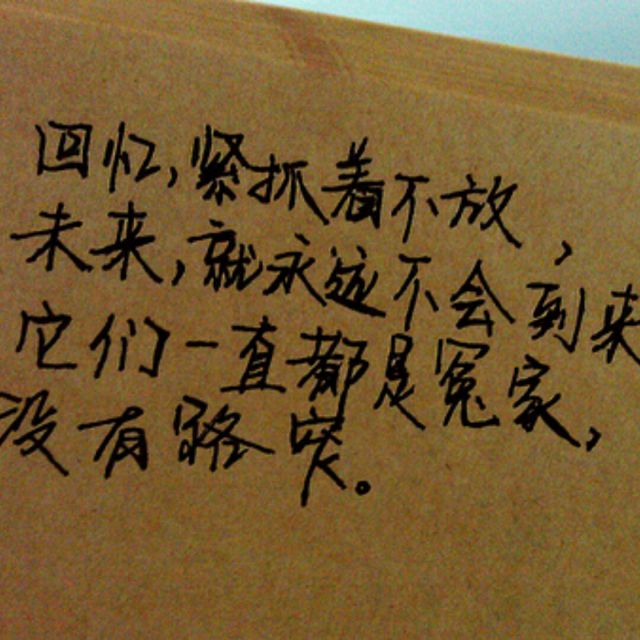 回忆,紧抓着不放,
未来,就永远不会到来
它们一直都是冤家,
没有路突。